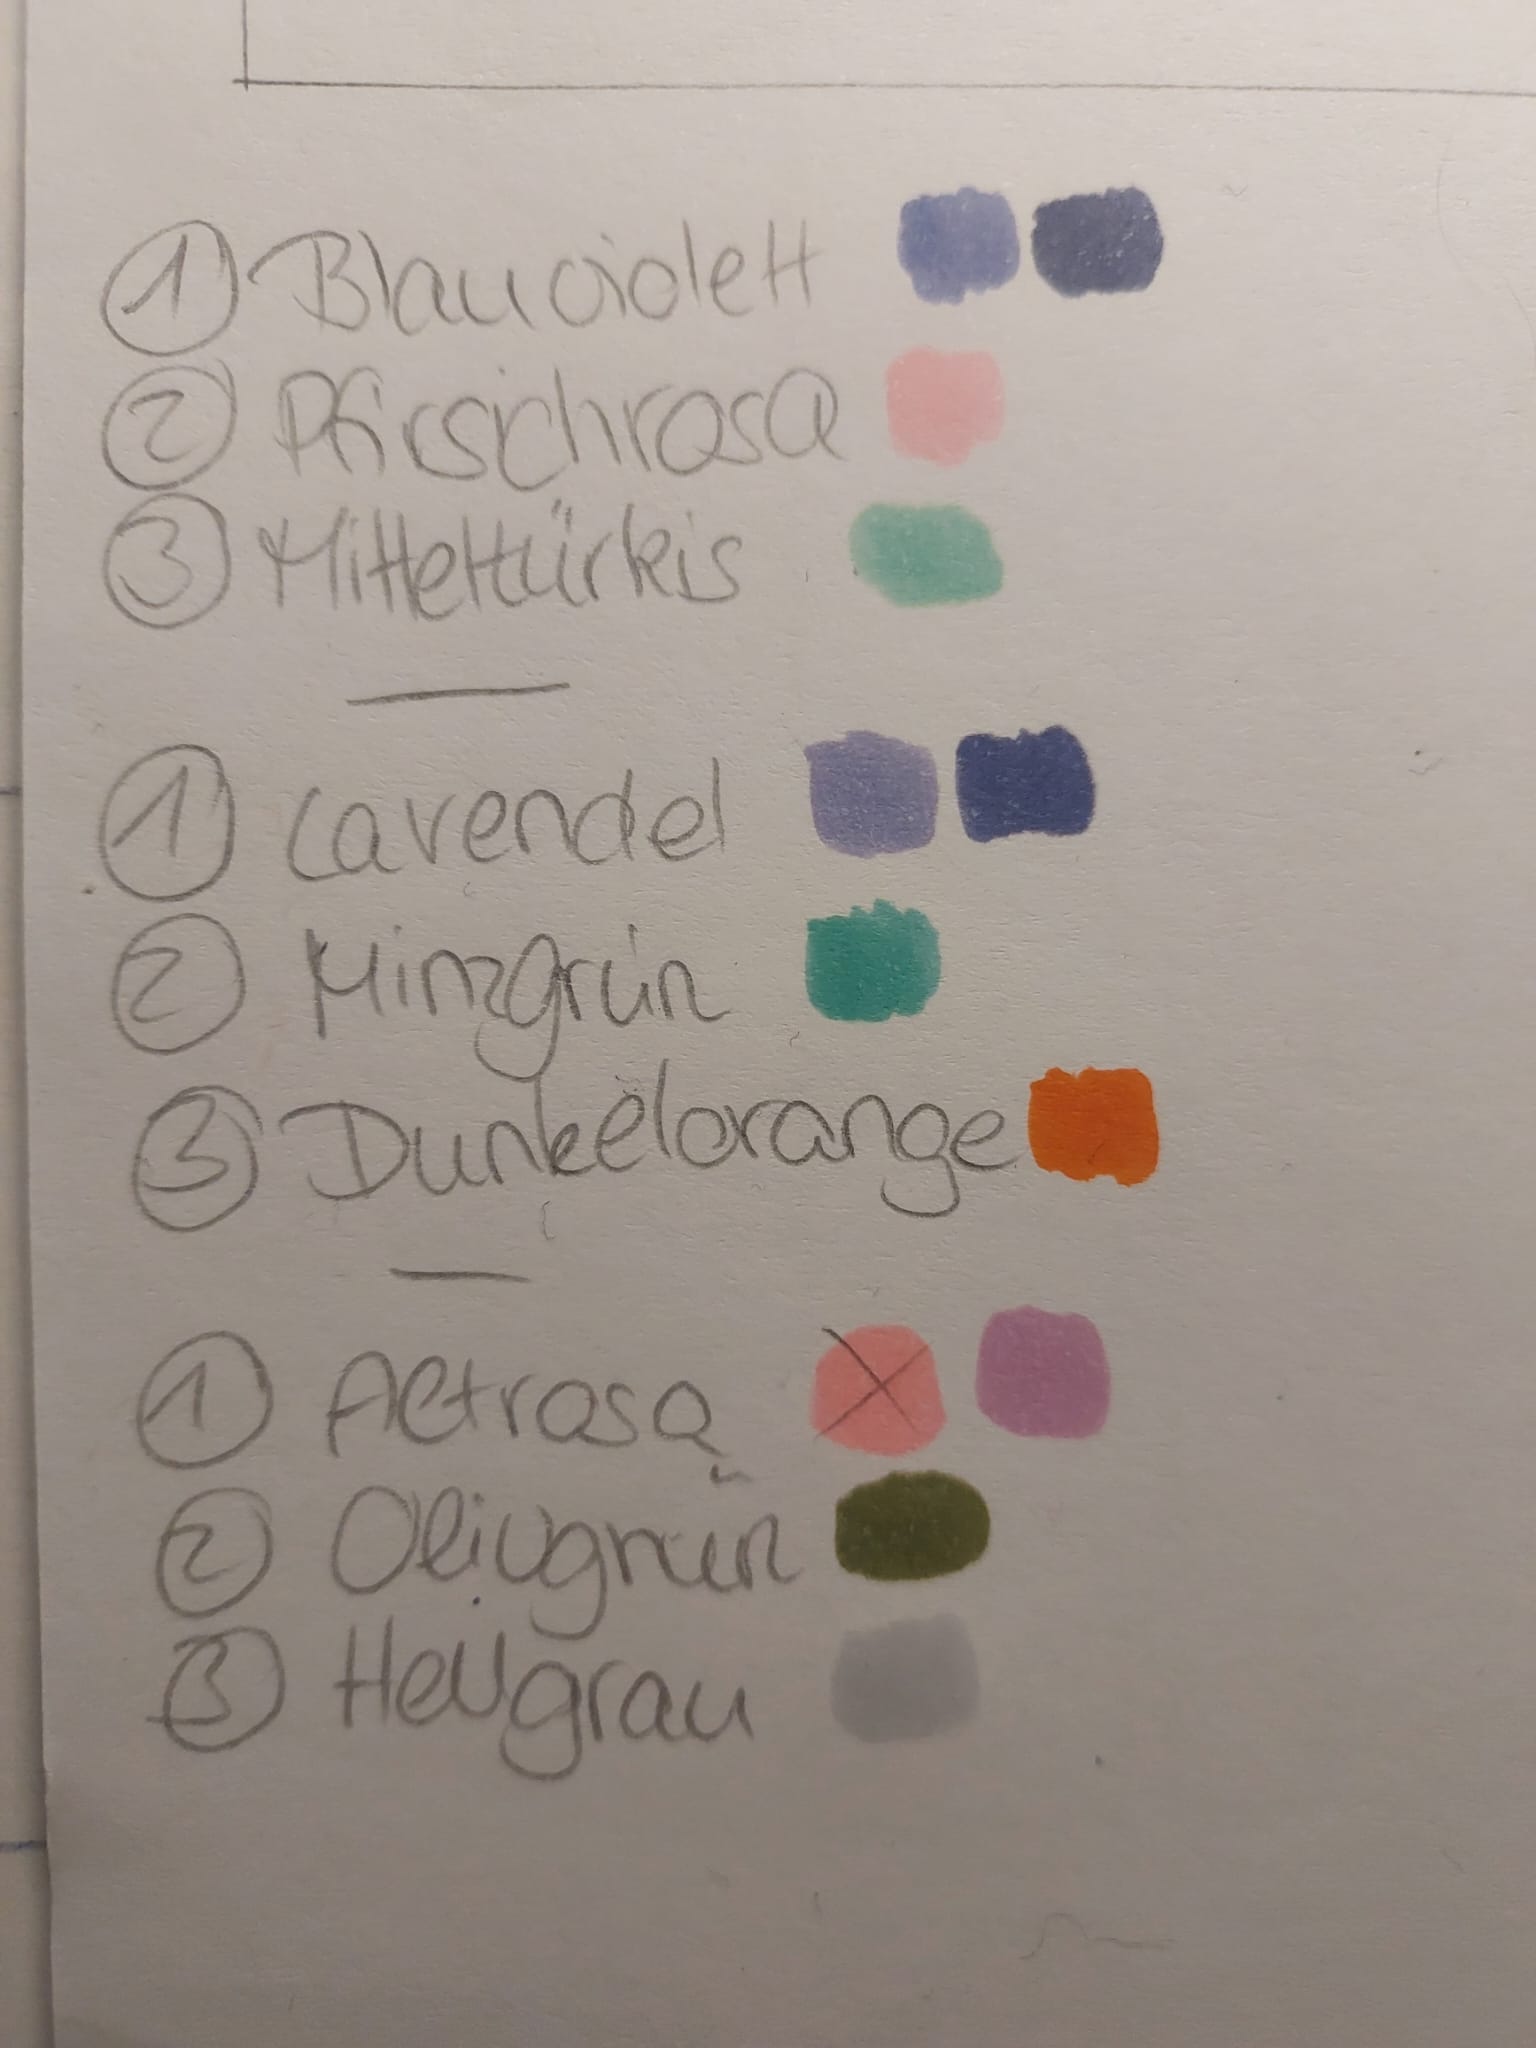 1 Blauviolett
2 Pfirsichrosa
3 Mitteltürkis
1 Lavendel
2 Minzgrün
3 Dunkelorange
1 Altrosa
2 Olivgrün
3 Hellgrau